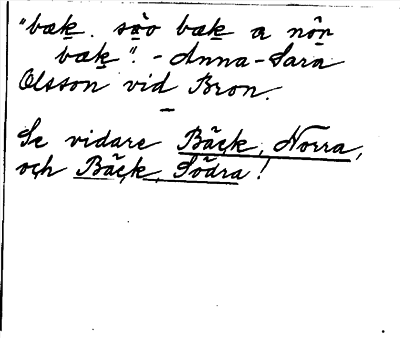 "bæk. sào bæk a nôr
bæk". – Anna-Sara
Olsson vid Bron.
–
Se vidare Bäck, Norra,
och Bäck, Södra!